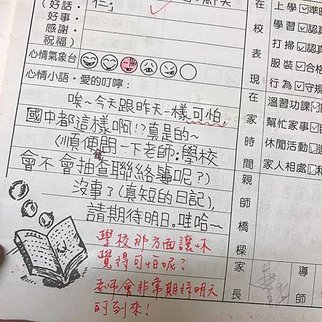 (好話、
好事、
感謝、
祝福)
心情氣象台
心情小語、愛的叮嚀：
唉~今天跟昨天一樣可怕，
國中都這樣啊!?真是的~
(順便問一下老師：學校
會不會抽查聯絡簿呢？)
沒事了(真短的日記)，
請期待明日。哇哈~
學校那方面讓你
覺得可怕呢？
老師會非常期待明天
的到來！
在校表現
在家時間
親師橋樑
家長
導師
上學
準時
學習
認真
打掃
認真
服裝
合格
行為
守規
溫習功課
幫忙家事
休閒活動
家人相處